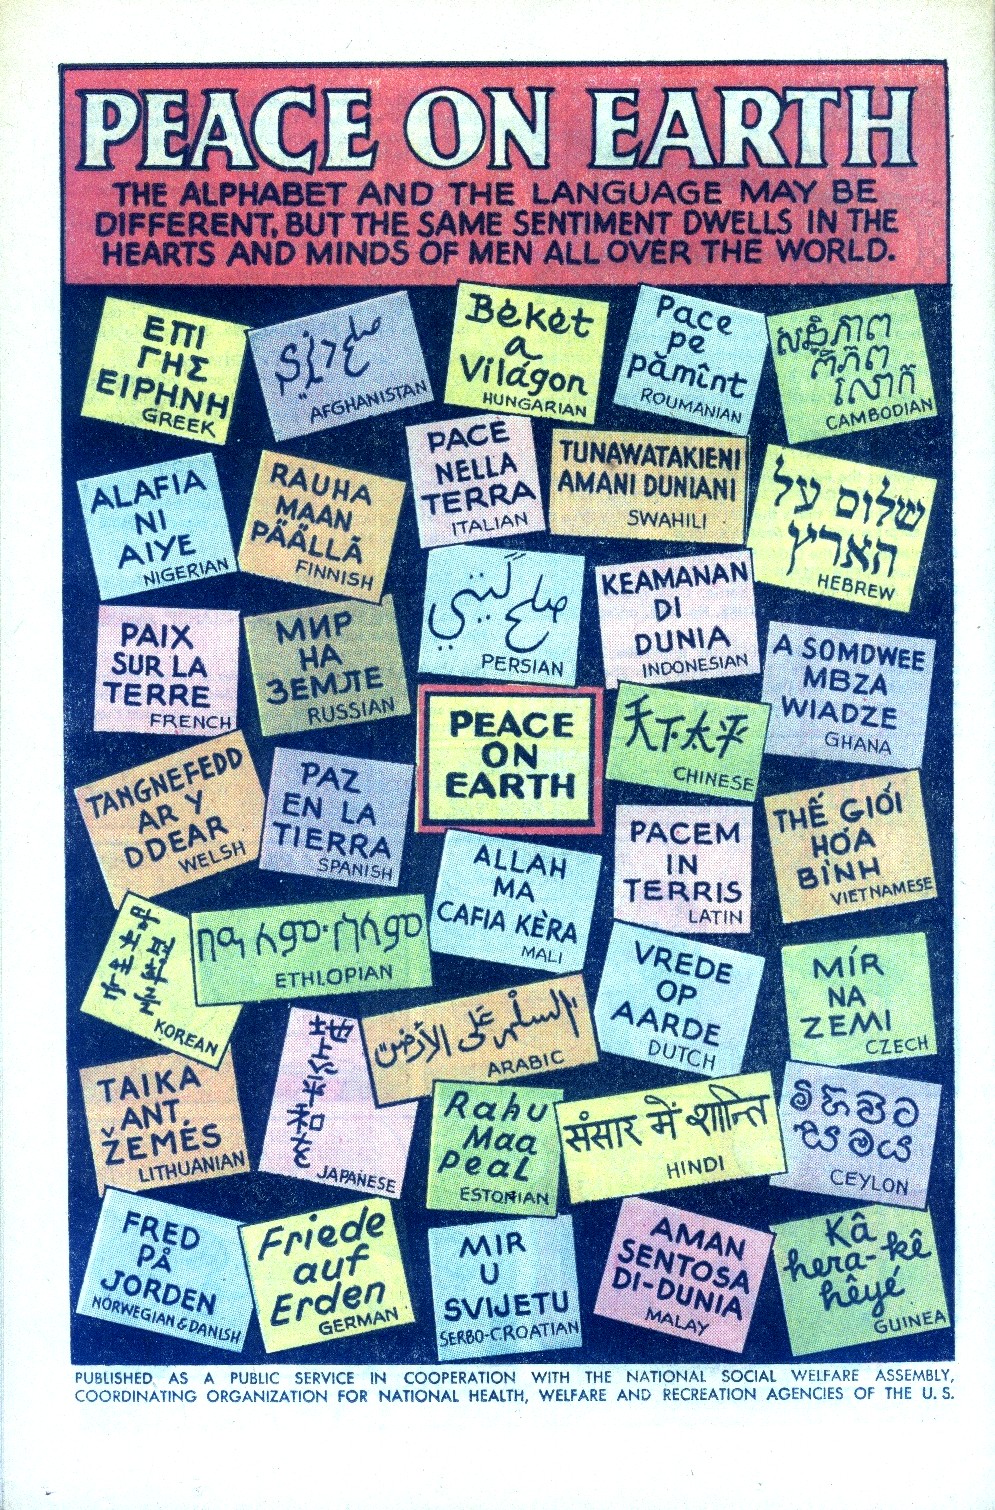 PEACE ON EARTH
THE ALPHABET AND THE LANGUAGE MAY BE
DIFFERENT, BUT THE SAME SENTIMENT DWELLS IN THE
HEARTS AND MINDS OF MEN ALL OVER THE WORLD.
ΕΠΙ
ΓΗΣ
ΕΙΡΗΝΗ
GREEK
AFGHANISTAN
Béкét
a
Világon
HUNGARIAN
Pace
pe
pămînt
ROUMANIAN
CAMBODIAN
ALAFIA
NI
AIYE
NIGERIAN
RAUHA
MAAN
PÄÄLLÄ
FINNISH
PACE
NELLA
TERRA
ITALIAN
TUNAWATAKIENI
AMANI DUNIANI
SWAHILI
שלום על
הארץ
HEBREW
PAIX
SUR LA
TERRE
FRENCH
МИР
НА
ЗЕМЛЕ
RUSSIAN
صلح گیتی
PERSIAN
KEAMANAN
DI
DUNIA
INDONESIAN
A SOMDWEE
MBZA
WIADZE
GHANA
TANGNEFEDD
AR Y
DDEAR
WELSH
PAZ
EN LA
TIERRA
SPANISH
PEACE
ON
EARTH
天下太平
CHINESE
PACEM
IN
TERRIS
LATIN
THẾ GIỚI
HÓA
BÌNH
VIETNAMESE
KOREAN
ETHLOPIAN
ALLAH
MA
CAFIA KÈRA
MALI
VREDE
OP
AARDE
DUTCH
MÍR
NA
ZEMI
CZECH
TAIKA
ANT
ŽEMÉS
LITHUANIAN
地に平和を
JAPANESE
السلام على الأرض
ARABIC
Rahu
Maa
peal
ESTONIAN
संसार में शान्ति
HINDI
CEYLON
FRED
PÅ
JORDEN
NORWEGIAN & DANISH
Friede
auf
Erden
GERMAN
MIR
U
SVIJETU
SERBO-CROATIAN
AMAN
SENTOSA
DI-DUNIA
MALAY
Kâ
hera-kê
hêyé
GUINEA
PUBLISHED AS A PUBLIC SERVICE IN COOPERATION WITH THE NATIONAL SOCIAL WELFARE ASSEMBLY,
COORDINATING ORGANIZATION FOR NATIONAL HEALTH, WELFARE AND RECREATION AGENCIES OF THE U. S.